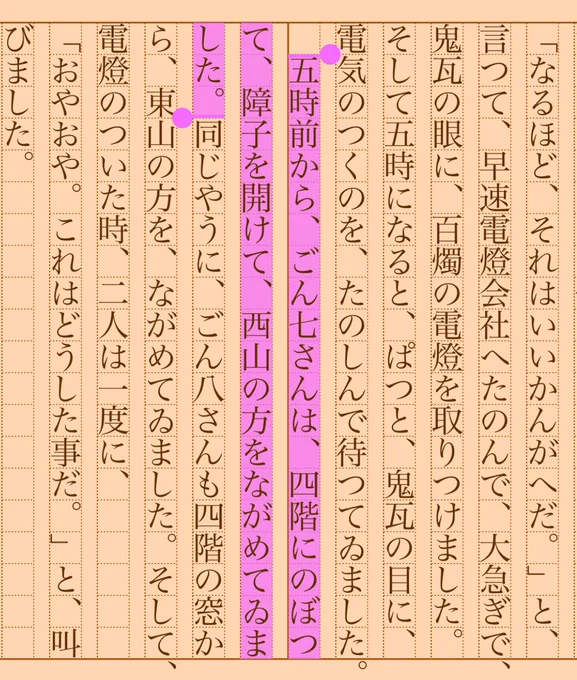 「なるほど、それはいいかんがへだ。」と、
言つて、早速電燈会社へたのんで、大急ぎで、
鬼瓦の眼に、百燭の電燈を取りつけました。
そして五時になると、ぱつと、鬼瓦の目に、
電気のつくのを、たのしんで待つてゐました。
五時前から、ごん七さんは、四階にのぼつ
て、障子を開けて、西山の方をながめてゐま
した。同じやうに、ごん八さんも四階の窓か
ら、東山の方を、ながめてゐました。そして、
電燈のついた時、二人は一度に、
「おやおや。これはどうした事だ。」と、叫
びました。